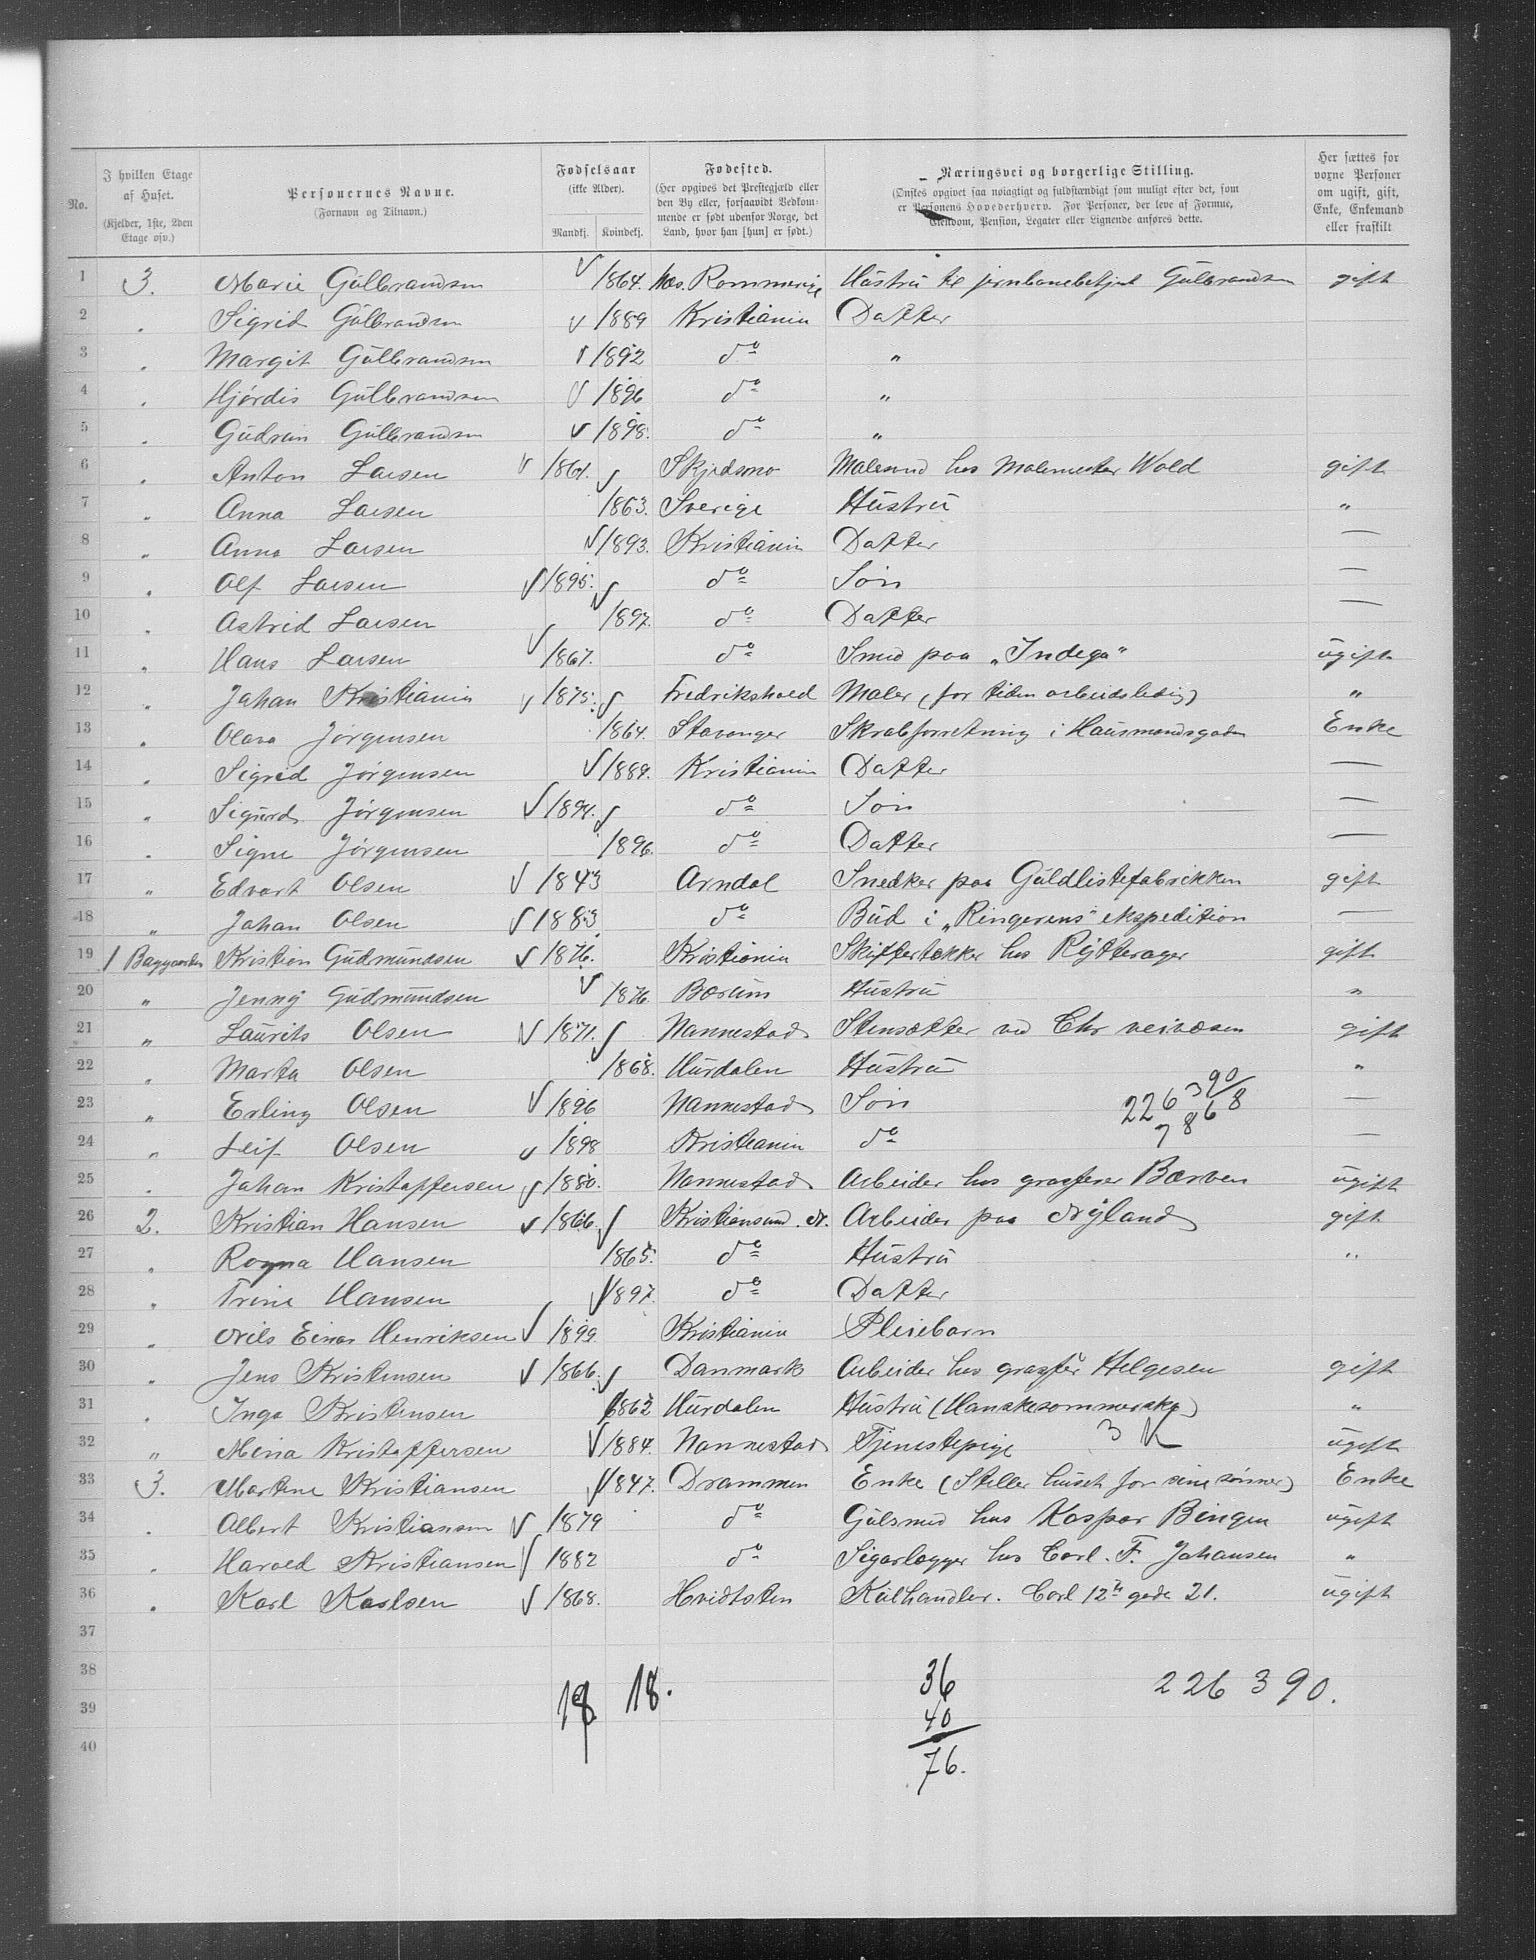 No.
I hvilken Etage af Huset.
(Kjelder, 1ste, 2den Etage osv.)
Personernes Navne.
(Fornavn og Tilnavn.)
Fødselsaar
(ikke Alder).
Mandkj. Kvindekj.
Fødested.
(Her opgives det Prestegjæld eller den By eller, forsaavidt Vedkommende er født udenfor Norge, det Land, hvor han [hun] er født.)
Næringsvei og borgerlige Stilling.
(Ønskes opgivet saa nøiagtigt og fuldstændigt som muligt efter det, som er Personens Hovederhverv. For Personer, der leve af Formue, Eiendom, Pension, Legater eller Lignende anføres dette.
Her sættes for voxne Personer om ugift, gift, Enke, Enkemand eller fraskilt
1 3. Marie Gülbrandsen 1864. Næs. Rommerige Hüstrü til jernbanebetjent Gülbrandsen gift
2 " Sigrid Gülbrandsen 1889 Kristiania Datter
3 " Margit Gülbrandsen 1892 do "
4 " Hjørdis Gülbrandsen 1896 do "
5 " Güdrün Gülbrandsen 1898. do "
6 " Anton Larsen 1861. Skjedsmo Malesvend hos Malemester Wold gift
7 " Anna Larsen 1863. Sverige Hüstrü "
8 " Anna Larsen 1893. Kristiania Datter —
9 " Olf Larsen 1895. do Søn —
10 " Astrid Larsen 1897. do Datter —
11 " Hans Larsen 1867. do Smed paa „Indega" ügift
12 " Johan Kristianin 1875. Fredrikshald Maler (for tiden arbeidsledig) "
13 " Olava Jørgensen 1864. Stavanger Skrabforretning i Haüsmandsgaden Enke
14 " Sigrid Jørgensen 1889. Kristiania Datter —
15 " Sigürd Jørgensen 1894. do Søn —
16 " Signe Jørgensen 1896. do Datter —
17 " Edvart Olsen 1843 Arndal Snedker paa Güldlistefabrikken gift
18 " Johan Olsen 1883 do Büd i „Ringerens" ekspedition —
19 1 Baggaarden Kristian Güdmündsen 1876. Kristiania Skiffertækker hos Rytterager gift
20 " Jenny Güdmündsen 1876. Bærüm Hüstrü "
21 " Laürits Olsen 1871. Nannestad Stensætter ved Chr veivæsen gift
22 " Marta Olsen 1868. Hürdalen Hüstrü "
23 " Erling Olsen 1896 Nannestad Søn —
226 390
7868
24 " Leif Olsen 1898 Kristiania do —
25 " Johan Kristoffersen 1880. Nannestad Arbeider hos grosserer Bærven ügift
26 2. Kristian Hansen 1866. Kristiansund. N. Arbeider paa Nyland gift
27 " Ragna Hansen 1865. do Hüstrü "
28 " Trine Hansen 1897. do Datter
29 " Nils Einar Henriksen 1899. Kristiania Pleiebarn
30 " Jens Kristensen 1866. Danmark Arbeider hos grosser Helgesen gift
31 " Inga Kristensen 1862 Hürdalen Hüstrü (Hanskesommerske) "
32 " Mina Kristoffersen 1884. Nannestad Tjenestepige 3 K ügift
33 3. Martine Kristiansen 1847. Drammen Enke (Steller hüset for sine sønner) Enke
34 " Albert Kristiansen 1879 do Gülsmed hos Kaspar Bingen ügift
35 " Harald Kristiansen 1882 do Sigarlægger hos Carl. F. Johansen "
36 " Karl Karlsen 1868. Hvidtsten Külhandler. Carl 12te gade 21. ügift
37
38 18 18. 36 226 390.
39 40
40 76.